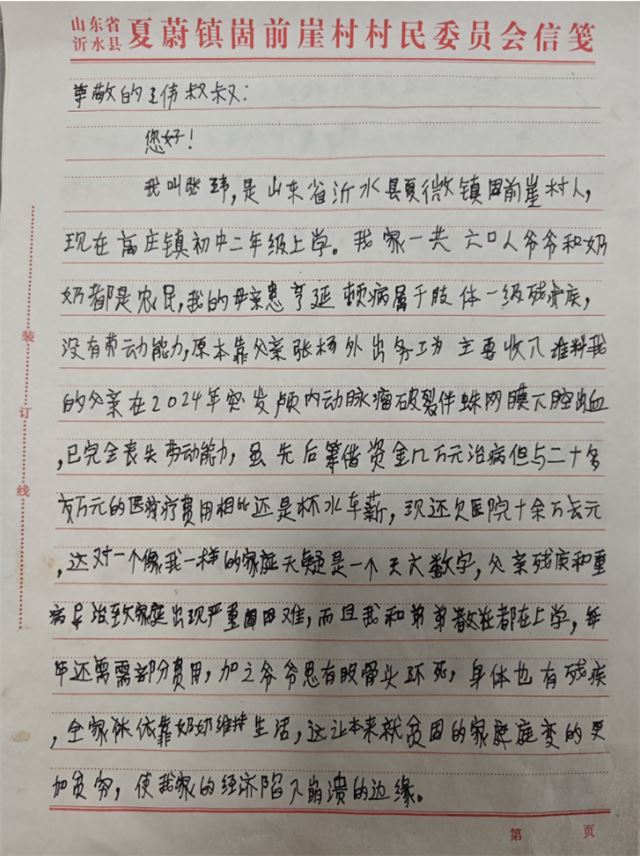 山东省
沂水县 夏蔚镇崮前崖村村民委员会信笺
尊敬的王伟叔叔：
您好！
我叫张玮，是山东省沂水县夏微镇固前崖村人，
现在高庄镇初中二年级上学。我家一共六口人爷爷和奶
奶都是农民，我的母亲患亨延顿病属于肢体一级残疾，
没有劳动能力，原本靠父亲张杨外出务工为主要收入谁料我
的父亲在2024年突发颅内动脉瘤破裂伴蛛网膜下腔出血
，已完全丧失劳动能力，虽先后筹借资金几万元治病但与二十多
万元的医疗费用相比还是杯水车薪，现还欠医院十余万元
，这对一个像我一样的家庭无疑是一个天大数字，父亲残疾和重
病导治致家庭出现严重困难，而且我和弟弟都在上学，每
年还需需部分费用，加之爷爷患有股骨头环死，身体也有残疾
，全家依靠奶奶维持生活，这让本来就贫困的家庭庭变的更
加贫穷，使我家的经济陷入崩溃的边缘。
装
订
线
第 页